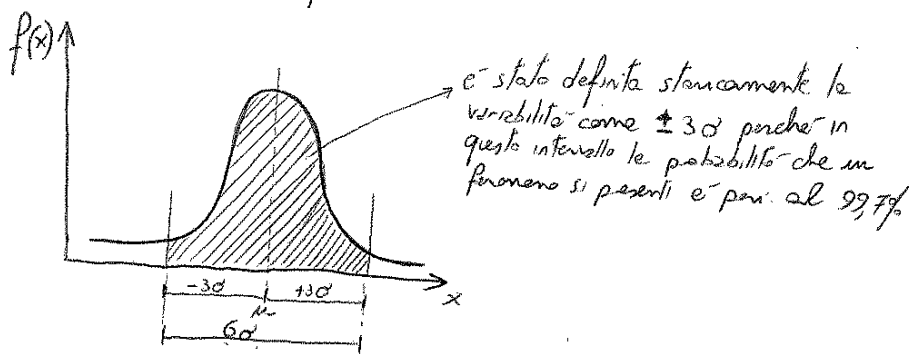 f(x)
è stato definita storicamente la
variabilità come ± 3σ perché in
questo intervallo le probabilità che un
fenomeno si presenti è pari al 99,7%
-3σ
+3σ
x
μ
6σ